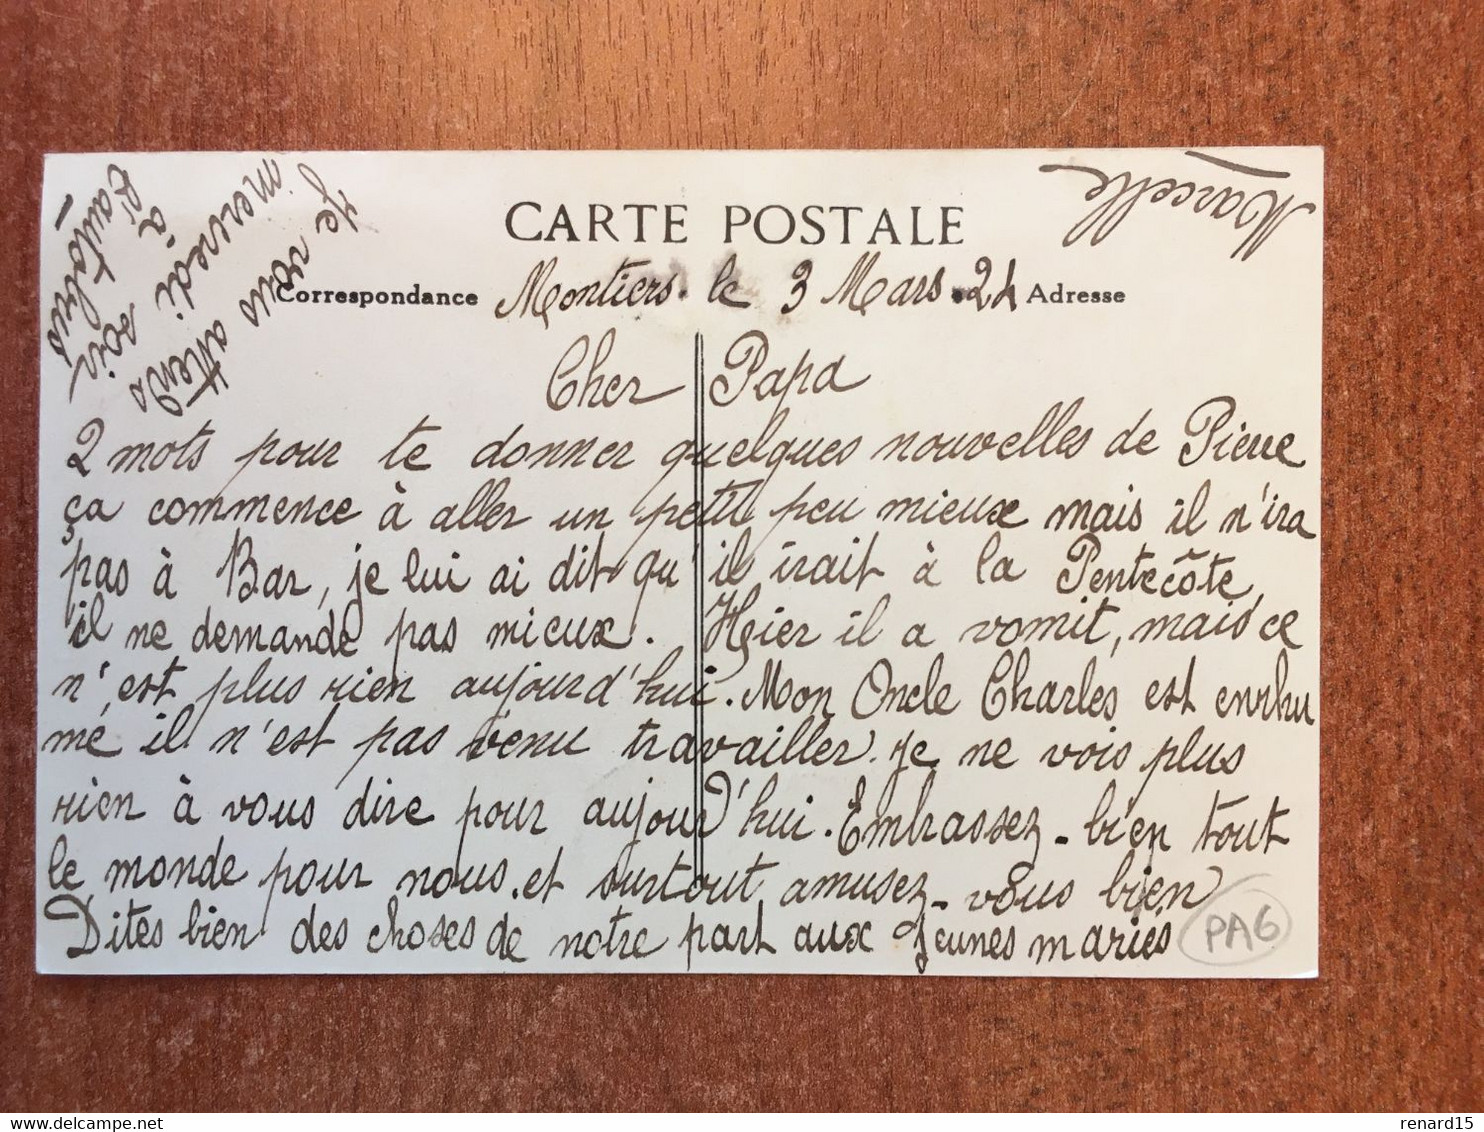 CARTE POSTALE
Correspondance
Adresse
Montiers. le 3 Mars. 24
Cher Papa
2 mots pour te donner quelques nouvelles de Pierre
ça commence à aller un petit peu mieux mais il n'ira
pas à Bar, je lui ai dit qu'il irait à la Pentecôte,
il ne demande pas mieux. Hier il a vomit, mais ce
n'est plus rien aujourd'hui. Mon Oncle Charles est enrhu
mé il n'est pas venu travailler. Je ne vois plus
rien à vous dire pour aujourd'hui. Embrassez-bien tout
le monde pour nous. et surtout amusez-vous bien
Dites bien des choses de notre part aux jeunes mariés
Je vous attends
mercredi soir
à
l'autobus
Marcelle
PA6
renard15